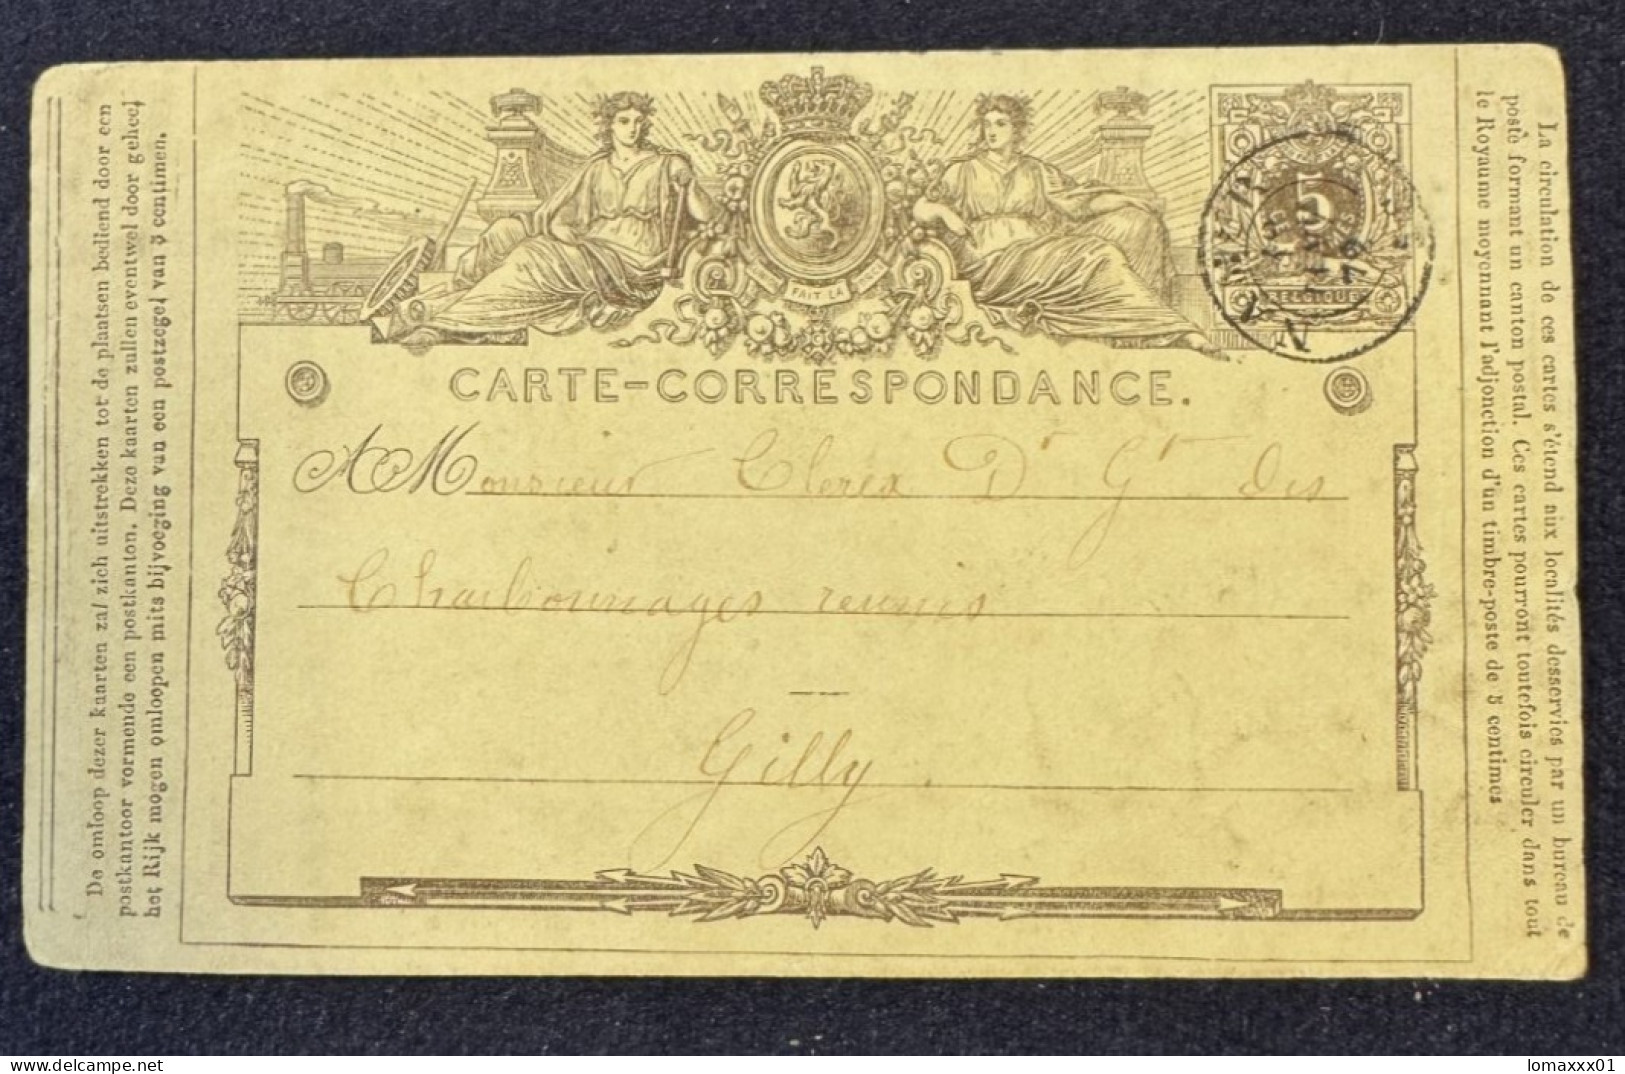 De omloop dezer kaarten zal zich uitstrekken tot de plaatsen bediend door een
postkantoor vormende een postkanton. Deze kaarten zullen eventwel door geheel
het Rijk mogen omloopen mits bijvoeging van een postzegel van 5 centimen.
FAIT LA
5
BELGIQUE
NAMUR
76
CARTE-CORRESPONDANCE.
A M Monsieur Clerex Dr Gt des
Charbonnages reunis
Gilly
La circulation de ces cartes s'étend aux localités desservies par un bureau de
poste formant un canton postal. Ces cartes pourront toutefois circuler dans tout
le Royaume moyennant l'adjonction d'un timbre-poste de 5 centimes
delcampe.net
lomaxxx01